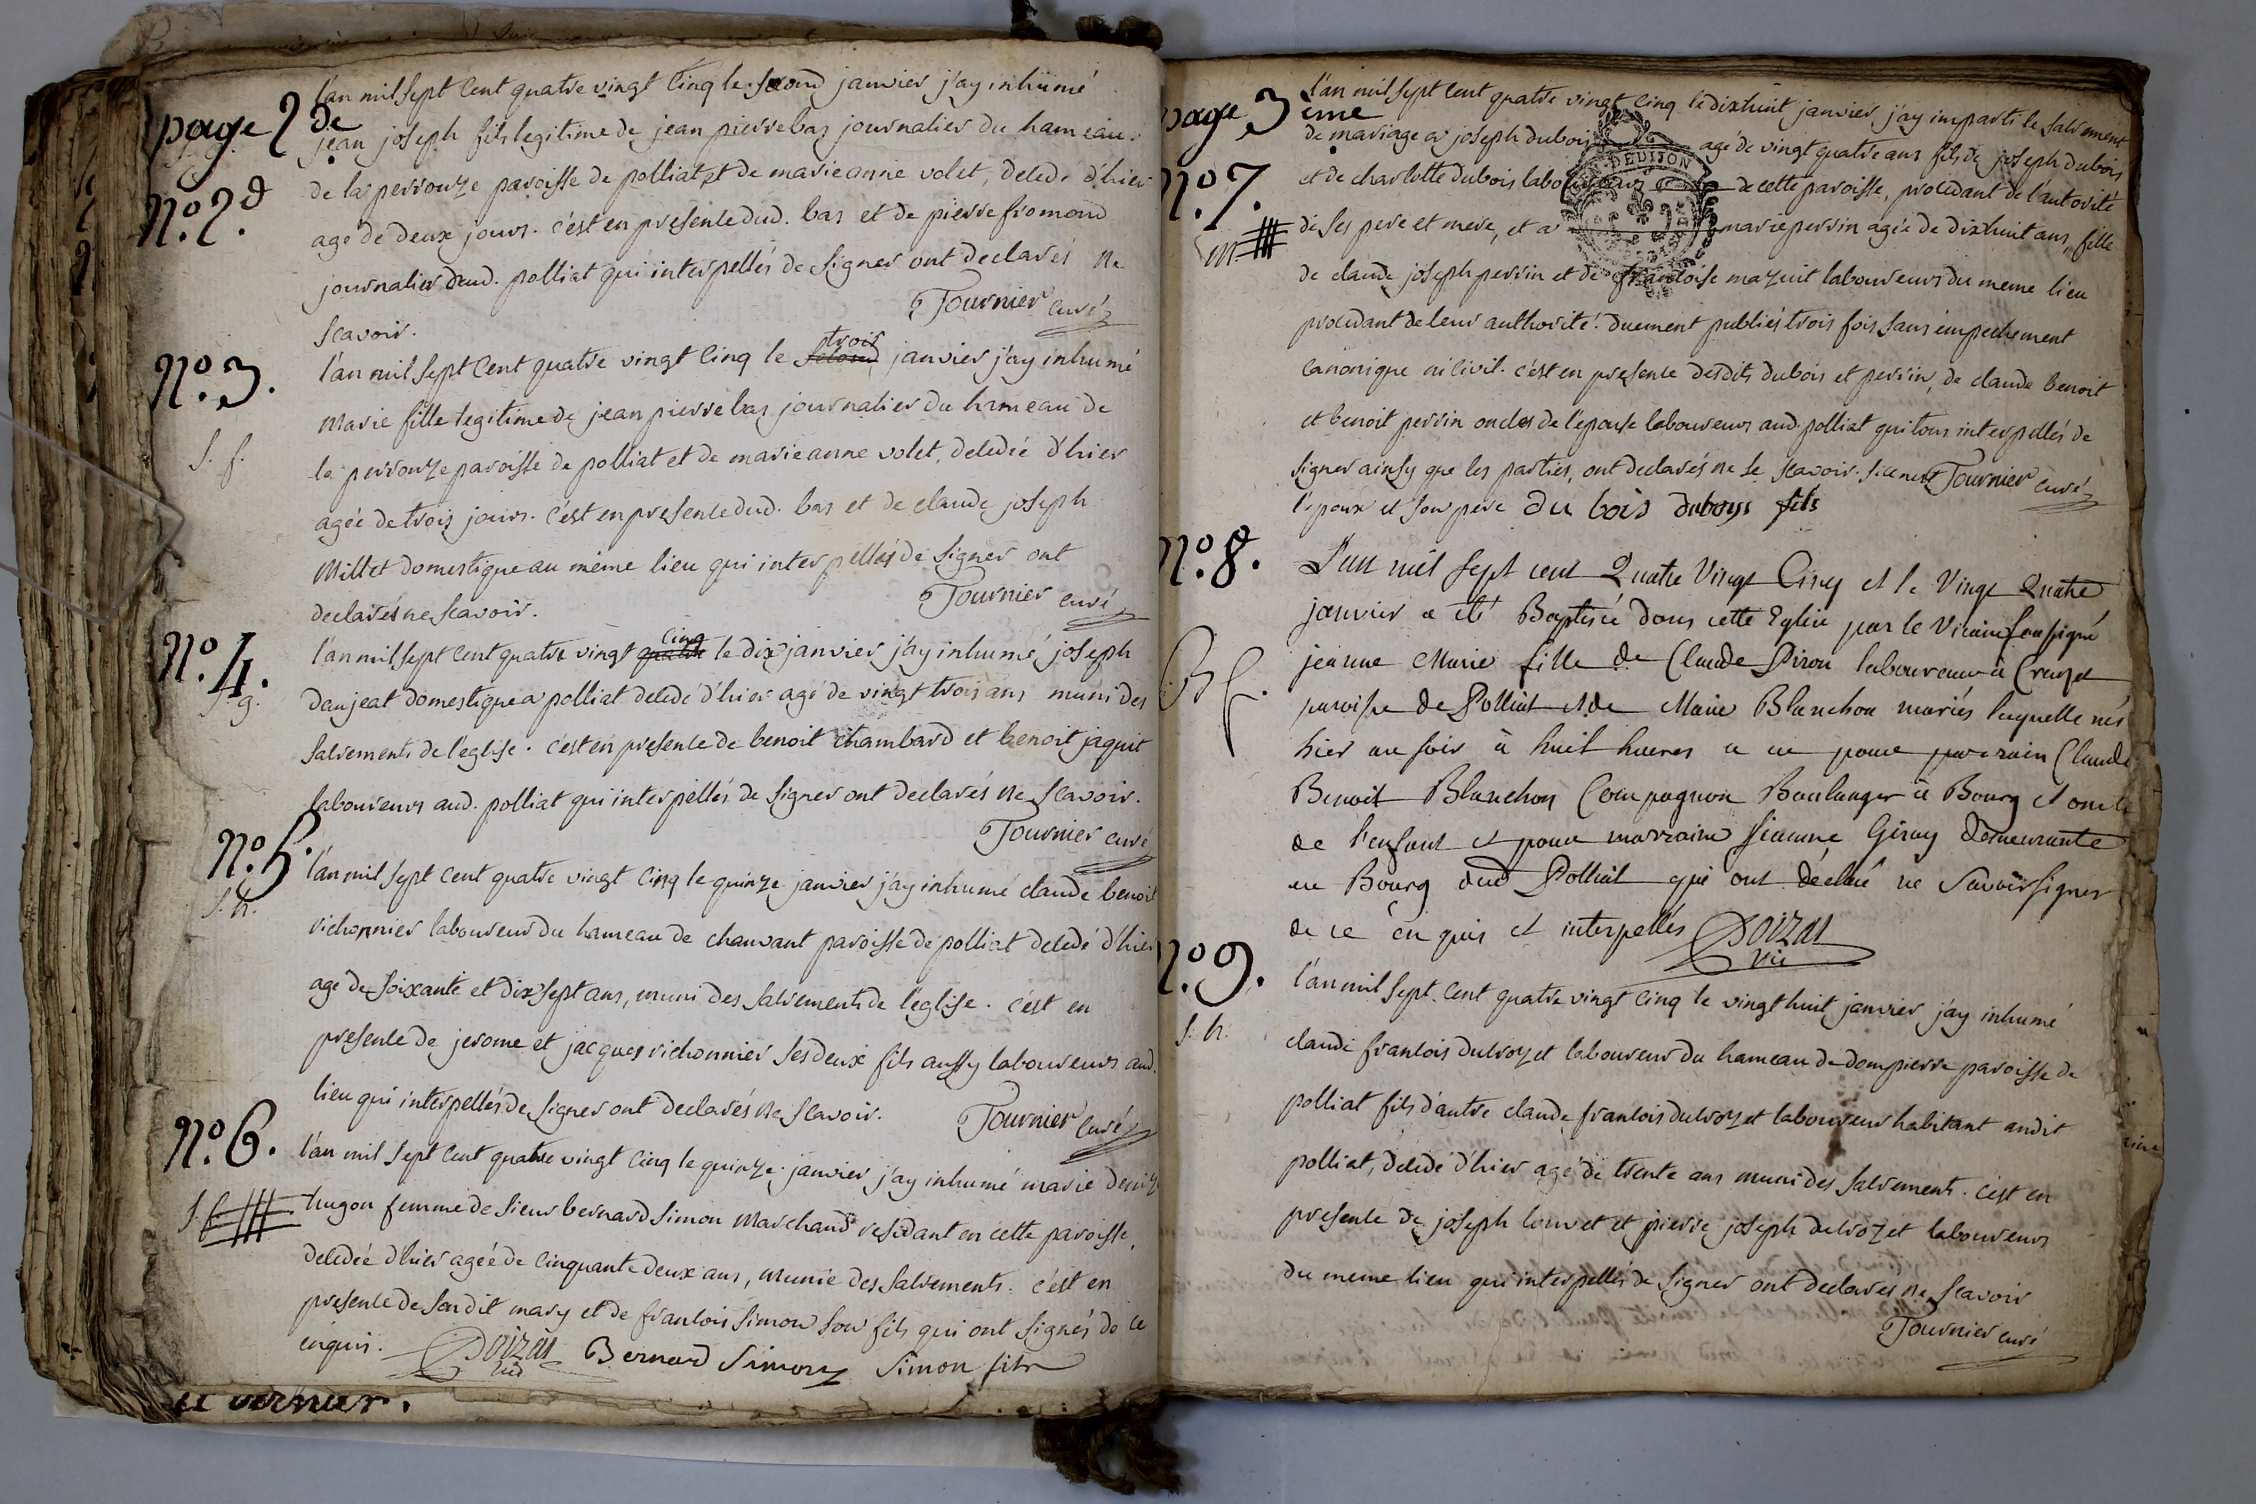 page 2 de
l'an mil sept cent quatre vingt cinq le second janvier j'ay inhumé
jean joseph fils legitime de jean pierre bas journalier du hameau
No. 2d.
de la perrouze paroisse de polliat et de marie anne volet, decedé d'hier
agé de deux jours. c'est en presence dud. bas et de pierre fromond
journalier dud. polliat qui interpellés de signer ont declarés ne
scavoir.
Tournier curé
No. 3.
l'an mil sept cent quatre vingt cinq le second trois janvier j'ay inhumé
marie fille legitime de jean pierre bas journalier du hameau de
s. f.
la perrouze paroisse de polliat et de marie anne volet, decedée d'hier
agée de trois jours. c'est en presence dud. bas et de claude joseph
Millet domestique au même lieu qui interpellés de signer ont
declarés ne scavoir.
Tournier curé
No. 4.
l'an mil sept cent quatre vingt quatre cinq le dix janvier j'ay inhumé joseph
s. g.
danjeat domestique a polliat decedé d'hier agé de vingt trois ans muni des
sacrements de l'eglise. c'est en presence de benoit chambard et benoit jaquit
laboureurs aud. polliat qui interpellés de signer ont declarés ne scavoir.
Tournier curé
No. 5.
l'an mil sept cent quatre vingt cinq le quinze janvier j'ay inhumé claude benoit
s. h.
vichonnier laboureur du hameau de chanvant paroisse de polliat decedé d'hier
agé de soixante et dix sept ans, muni des sacrements de l'eglise. c'est en
presence de jerome et jacques vichonnier ses deux fils aussy laboureurs aud.
lieu qui interpellés de signer ont declarés ne scavoir.
Tournier curé
No. 6.
l'an mil sept cent quatre vingt cinq le quinze janvier j'ay inhumé marie denize
s. f.
hugon femme de sieur bernard simon marchand residant en cette paroisse,
decedée d'hier agée de cinquante deux ans, munie des sacrements. c'est en
presence de son dit mary et de francois simon son fils qui ont signés de ce
enquis.
Poizat
vic
Bernard Simon
Simon fils
page 3 eme
l'an mil sept cent quatre vingt cinq le dixhuit janvier j'ay imparti le sacrement
No. 7.
de mariage a joseph dubois agé de vingt quatre ans fils de joseph dubois
et de charlotte dubois laboureurs de cette paroisse, procedant de l'autorité
m.
de ses pere et mere, et a marie perrin agée de dixhuit ans, fille
de claude joseph perrin et de francoise mazuit laboureurs du meme lieu
procedant de leur authorité. duement publiés trois fois sans empechement
canonique ni civil. c'est en presence desdits dubois et perrin, de claude benoit
et benoit perrin oncles de l'epouse laboureurs aud. polliat qui tous interpellés de
signer ainsy que les parties, ont declarés ne le scavoir. si ce n'est
l'epoux et son pere du bois dubois fils
Tournier curé
DE DIJON
No. 8.
L'an mil sept cent Quatre Vingt Cinq et le Vingt Quatre
janvier a été Baptisée dans cette Eglise par le Vicaire soussigné
B f.
jeanne Marie fille de Claude Piron laboureur à Creuzet
paroisse de Polliat et de Marie Blanchon mariés laquelle née
hier au soir à huit heures a eu pour parrain Claude
Benoit Blanchon Compagnon Boulanger à Bourg et oncle
de l'enfant et pour marraine jeanne Giray demeurante
au Bourg dud Polliat qui ont déclaré ne Savoir signer
de ce enquis et interpellés
Poizat
vic
No. 9.
l'an mil sept cent quatre vingt cinq le vingt huit janvier j'ay inhumé
s. h.
claude francois dutroyet laboureur du hameau de dompierre paroisse de
polliat fils d'autre claude francois dutroyet laboureur habitant audit
polliat, decedé d'hier agé de trente ans muni des sacrements. c'est en
presence de joseph louvet et pierre joseph dutroyet laboureurs
du meme lieu qui interpellés de signer ont declarés ne scavoir
Tournier curé